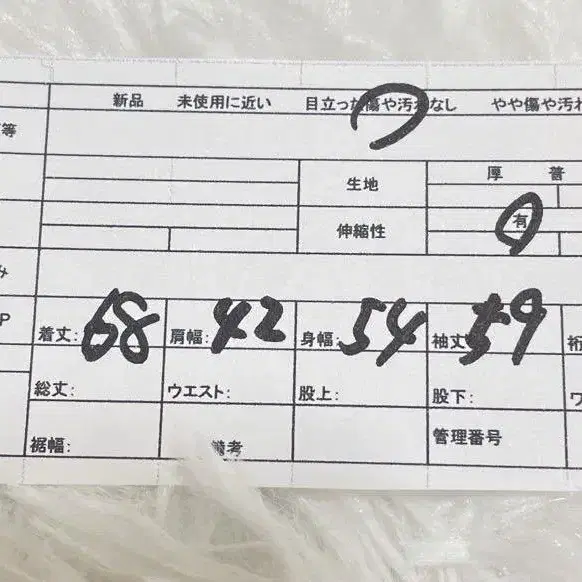 新品 未使用に近い 目立った傷や汚れなし やや傷や汚れ
等
生地 厚 普
伸縮性 有
み
P 着丈: 68 肩幅: 42 身幅: 54 袖丈: 59 裄
総丈: ウエスト: 股上: 股下: ワ
裾幅: 備考 管理番号